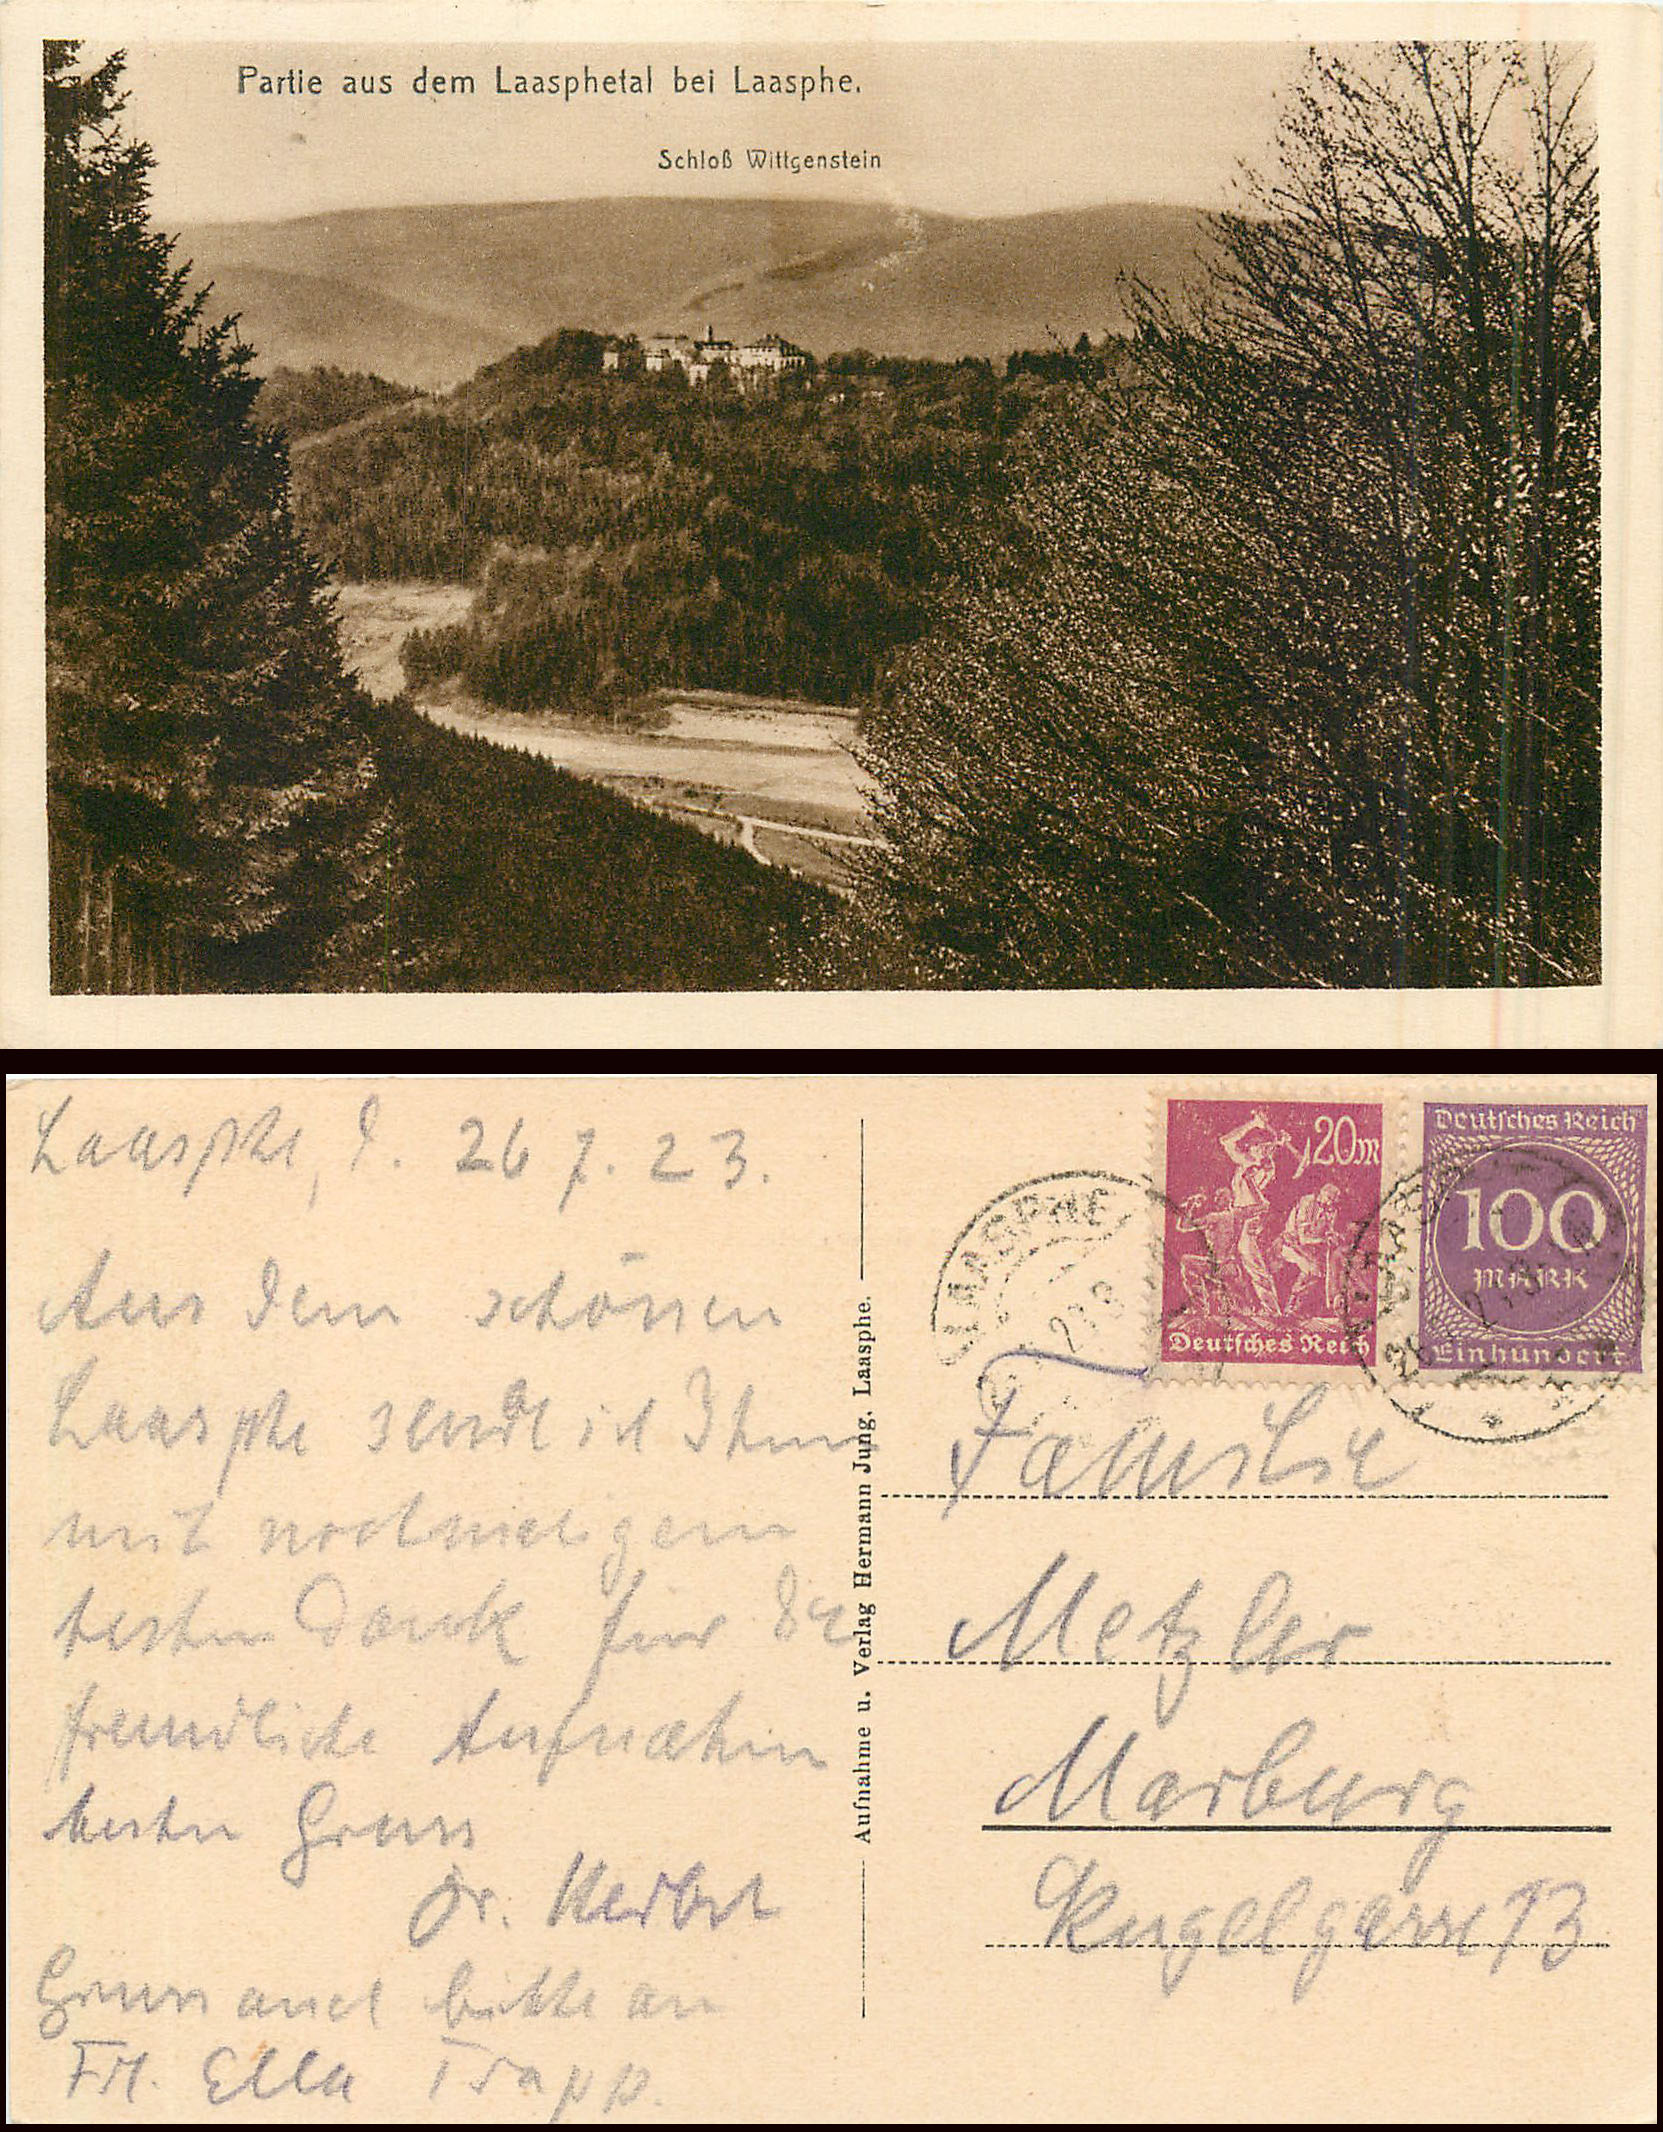 Partie aus dem Laasphetal bei Laasphe.
Schloß Wittgenstein
Laasphe, d. 26 7. 23.
Aus dem schönen
Laasphe sende ich Ihnen
mit nochmaligem
besten Dank für die
freundliche Aufnahme
besten Gruss
Dr. Herbst
Gruss auch bitte an
Frl. Ella Trapp.
Aufnahme u. Verlag Hermann Jung, Laasphe.
LAASPHE
20 M
Deutsches Reich
Deutsches Reich
100
MARK
Einhundert
Familie
Metzler
Marburg
Kugelgasse 13